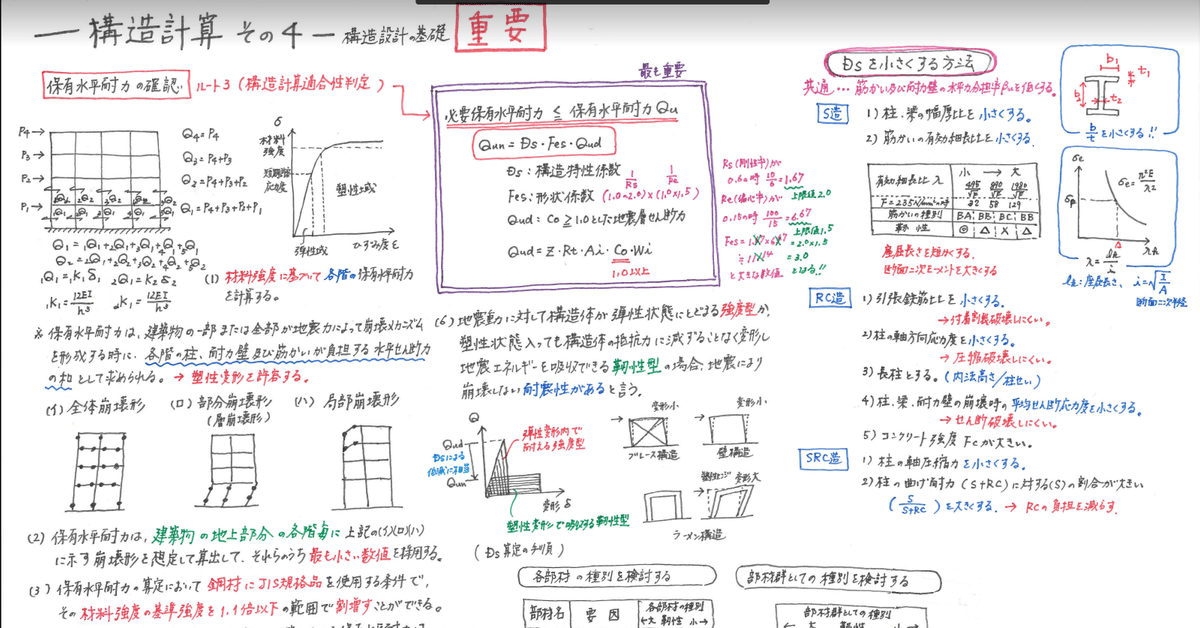 ― 構造計算 その4 ― 構造設計の基礎 重要
保有水平耐力の確認 ルート3 (構造計算適合性判定)
P4→
P3→
P2→
P1→
Q4=P4
Q3=P4+P3
Q2=P4+P3+P2
Q1=P4+P3+P2+P1
σ
材料強度
短期許容応力度
塑性域
弾性域
ひずみ度 ε
Q1=1Q1+2Q1+3Q1+4Q1+5Q1
Q2=1Q2+2Q2+3Q2+4Q2+5Q2
1Q1=1K1δ1 2Q2=K2δ2
1K1=12EI/h³ 2K1=12EI/h³
(1) 材料強度に基づいて各階の保有水平耐力
を計算する。
※ 保有水平耐力は、建築物の一部または全部が地震力によって崩壊メカニズム
を形成する時に、各階の柱、耐力壁及び筋かいが負担する水平せん断力
の和として求められる。→ 塑性変形を許容する。
(イ) 全体崩壊形 (ロ) 部分崩壊形 (ハ) 局部崩壊形
(層崩壊形)
(2) 保有水平耐力は、建築物の地上部分の各階毎に上記の(イ)(ロ)(ハ)
に示す崩壊形を想定して算出して、それらのうち最も小さい数値を採用する。
(3) 保有水平耐力の算定において鋼材にJIS規格品を使用する条件で、
その材料強度の基準強度を1.1倍以下の範囲で割増すことができる。
最も重要
必要保有水平耐力 ≦ 保有水平耐力 Qu
Qun = Ds・Fes・Qud
Ds:構造特性係数
1/Rs 1/Re
Fes:形状係数 (1.0~2.0)×(1.0~1.5)
Qud:Co≧1.0とした地震層せん断力
Qud=Z・Rt・Ai・Co・Wi
1.0以上
Rs(剛性率)が
0.6の時 10/6=1.67
上限値2.0
Re(偏心率)が
0.15の時 100/15=6.67
上限値1.5
=2.0×1.5
=3.0
と大きな数値となる!!
(6) 地震動に対して構造体が弾性状態にとどまる強度型か、
塑性状態入っても構造体の抵抗力に減ずることなく変形し
地震エネルギーを吸収できる靭性型の場合、地震により
崩壊しない耐震性があると言う。
Q
Qud
Dsによる低減に相当
Qun
弾性変形内で
耐える強度型
変形 δ
塑性変形で吸収する靭性型
変形小
ブレース構造
変形小
壁構造
塑性ヒンジ 変形大
ラーメン構造
(Ds算定の手順)
各部材の種別を検討する
部材名 要因 各部材の種別
←大 靭性 小→
部材群としての種別を検討する
部材群としての種別
←大 靭性 小→
Dsを小さくする方法
共通… 筋かい及び耐力壁の水平力分担率βuを低くする。
S造
1) 柱・梁の幅厚比を小さくする。
2) 筋かいの有効細長比を小さくする。
有効細長比 λ 小 → 大
495/√F 890/√F 1980/√F
F=235N/mm²の時 32 58 129
筋かいの種別 BA BB BC BB
靭性 ◎ △ × △
座屈長さを短かくする。
断面二次モーメントを大きくする
b1
t1
b2
t2
b/t を小さくする!!
σc
σp
σc=π²E/λ²
λ
λ=lk/i
lk:座屈長さ、i=√(I/A)
断面二次半径
RC造
1) 引張鉄筋比を小さくする。
→ 付着割裂破壊しにくい。
2) 柱の軸方向応力度を小さくする。
→ 圧縮破壊しにくい。
3) 長柱とする。(内法高さ/柱せい)
4) 柱、梁、耐力壁の崩壊時の平均せん断応力度を小さくする。
→ せん断破壊しにくい。
5) コンクリート強度 Fcが大きい。
SRC造
1) 柱の軸圧縮力を小さくする。
2) 柱の曲げ耐力(S+RC)に対する(S)の割合が大きい
(S/S+RC) を大きくする。→ RCの負担を減らす。